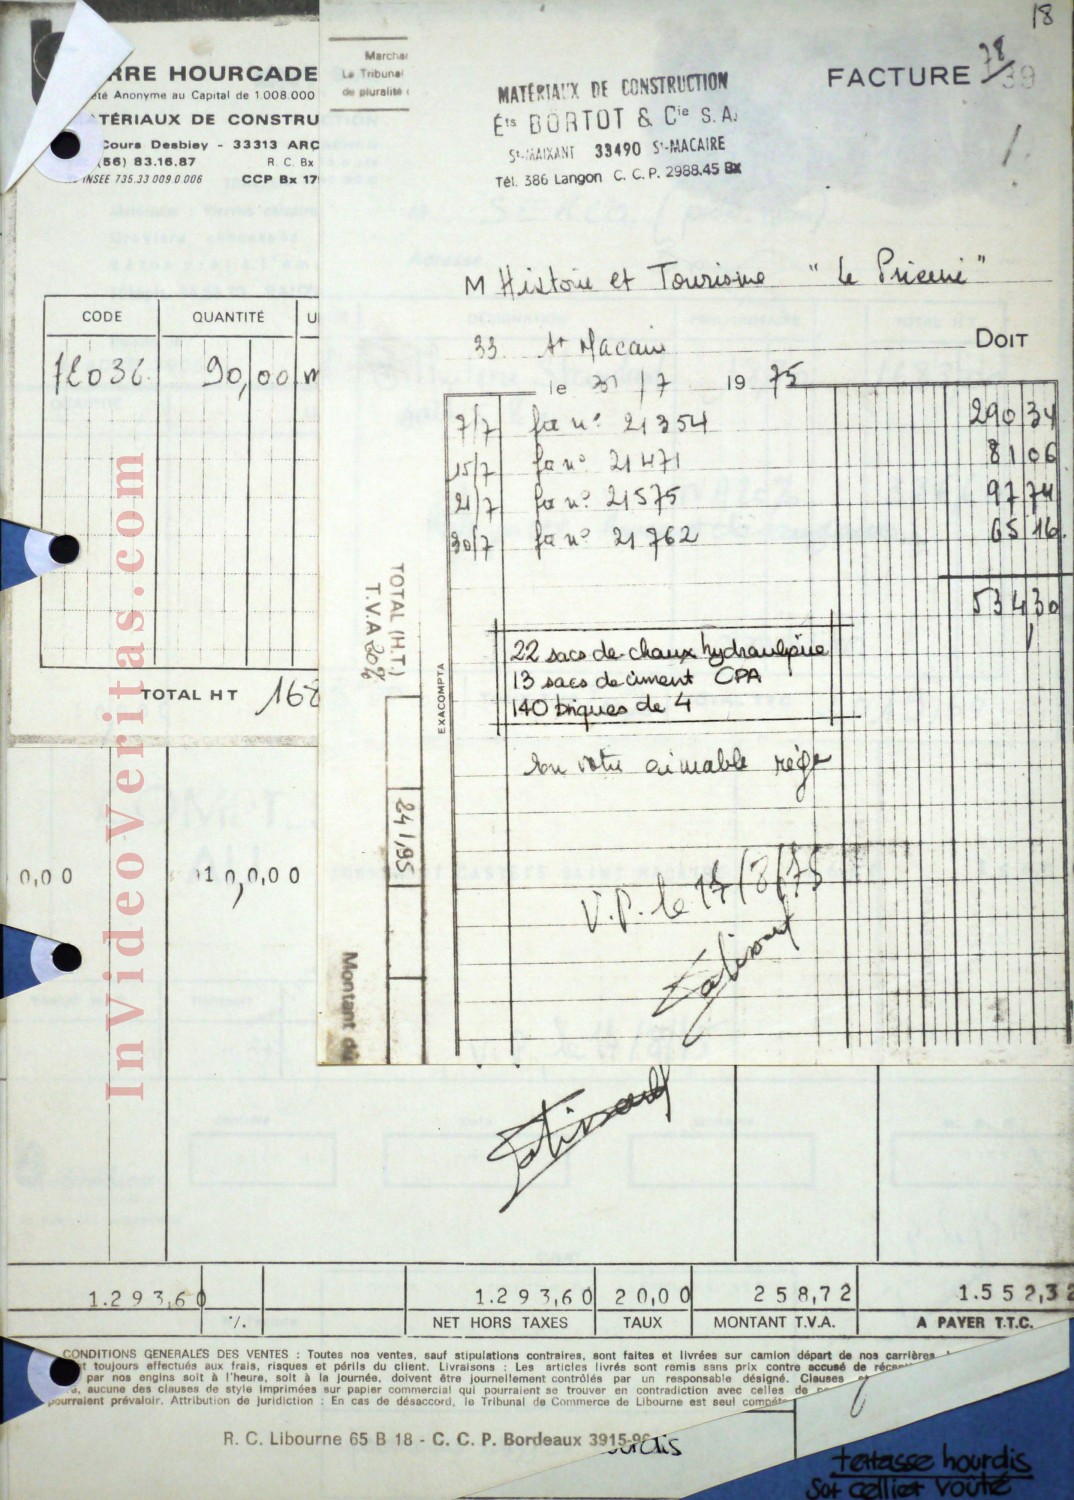 18
RRE HOURCADE
été Anonyme au Capital de 1.008.000
ATÉRIAUX DE CONSTRU
Cours Desbiey - 33313 ARC
(56) 83.16.87 R. C. Bx
INSEE 735.33 009 0 006 CCP Bx 17
Marchan
Le Tribunal
de pluralité
MATÉRIAUX DE CONSTRUCTION
Éts BORTOT & Cie S.A.
St-MAIXANT 33490 St-MACAIRE
Tél. 386 Langon C. C. P. 2988.45 Bx
FACTURE 78/39
1.
M Histoire et Tourisme " Le Prieuré "
33. St Macaire DOIT
le 31/7 1975
CODE QUANTITÉ U
90,00 m
7/7 fa n° 21354 290 34
15/7 fa n° 21471 81 06
21/7 fa n° 21575 97 74
30/7 fa n° 21762 65 16
534,30
22 sacs de chaux hydraulique
13 sacs de ciment CPA
140 briques de 4
EXACOMPTA
TOTAL (H.T.)
T.V.A 20%
TOTAL HT 168
votre aimable
0,00 10,0,00
24 1,95
V.P. le 17/8/75
Montant du
InVideoVeritas.com
1.293,60 1.293,60 20,00 258,72 1.552,32
%. NET HORS TAXES TAUX MONTANT T.V.A. A PAYER T.T.C.
CONDITIONS GENERALES DES VENTES : Toutes nos ventes, sauf stipulations contraires, sont faites et livrées sur camion départ de nos carrières.
t toujours effectués aux frais, risques et périls du client. Livraisons : Les articles livrés sont remis sans prix contre accusé de récep
par nos engins soit à l'heure, soit à la journée, doivent être journellement contrôlés par un responsable désigné. Clauses et
aucune des clauses de style imprimées sur papier commercial qui pourraient se trouver en contradiction avec celles de
pourraient prévaloir. Attribution de juridiction : En cas de désaccord, le Tribunal de Commerce de Libourne est seul compéte
R. C. Libourne 65 B 18 - C. C. P. Bordeaux 3915-96
terrasse hourdis
sur cellier voûté